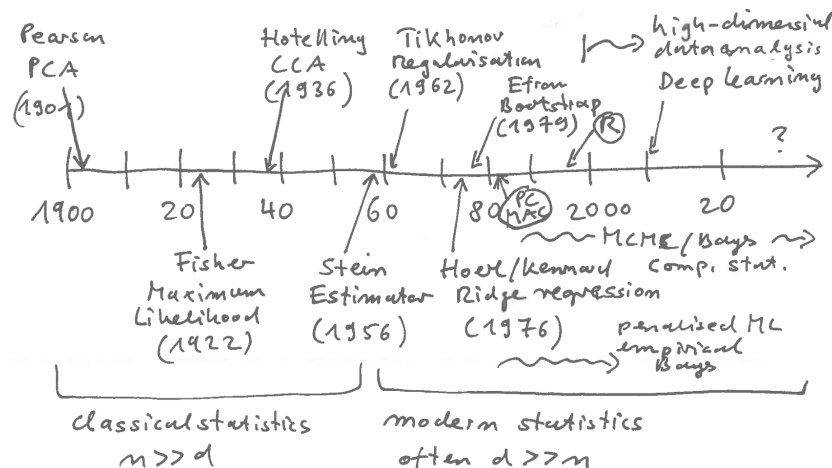 Pearson
PCA
(1901)
Hotelling
CCA
(1936)
Tikhonov
Regularisation
(1962)
Efron
Bootstrap
(1979)
R
high-dimensial
data analysis
Deep learning
?
1900
20
40
60
80
PC
MAC
2000
20
MCMC/Bays
Comp. stat.
Fisher
Maximum
Likelihood
(1922)
Stein
Estimator
(1956)
Hoerl/Kennard
Ridge regression
(1976)
penalised ML
empirical
Bays
classical statistics
n>>d
modern statistics
often d>>n